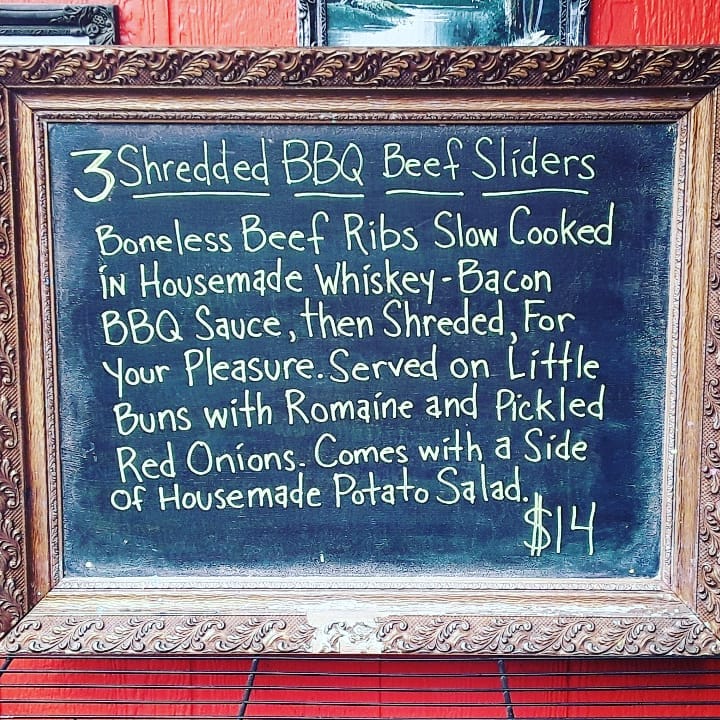 3 Shredded BBQ Beef Sliders
Boneless Beef Ribs Slow Cooked
in Housemade Whiskey-Bacon
BBQ Sauce, then Shreded, For
Your Pleasure. Served on Little
Buns with Romaine and Pickled
Red Onions. Comes with a Side
of Housemade Potato Salad.
$14